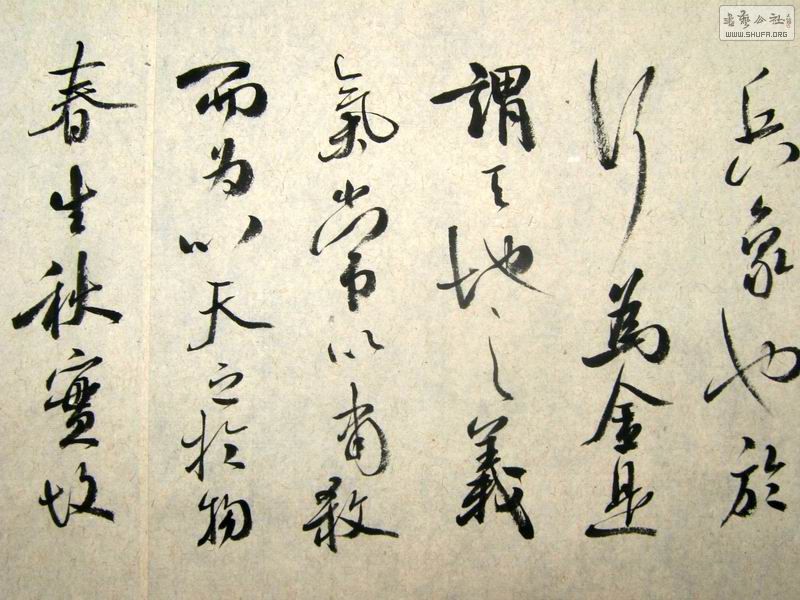 兵象也於
行為金是
謂天地之義
氣常以肅殺
而为心天之於物
春生秋實故
書藝公社
WWW.SHUFA.ORG